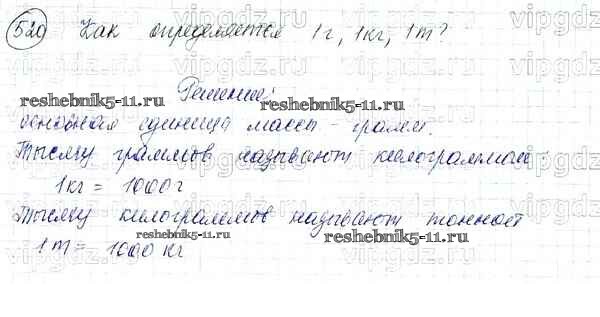 520 Как определяется 1г, 1кг, 1т?
Решение:
основная единица масс - грамм.
Тысячу граммов называют килограммом
1кг = 1000г
Тысячу килограммов называют тонной
1т = 1000 кг
vipgdz
reshebnik5-11.ru
reshebnik5-11.ru
reshebnik5-11.ru
reshebnik5-11.ru